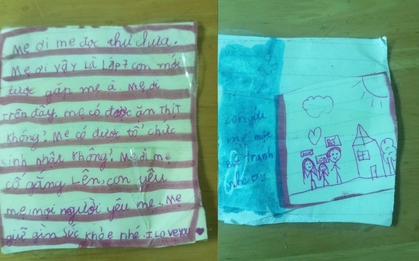 Mẹ ơi mẹ đọc thư chưa.
Mẹ ơi vậy là lớp 7 con mới
được gặp mẹ à. Mẹ ơi
trên đấy mẹ có được ăn thịt
không? Mẹ có được tổ chức
sinh nhật không? Mẹ ơi mẹ
cố gắng lên. con yêu
mẹ mọi người yêu mẹ. Mẹ
giữ gìn sức khỏe nhé I love you
con gửi
mẹ một
tranh